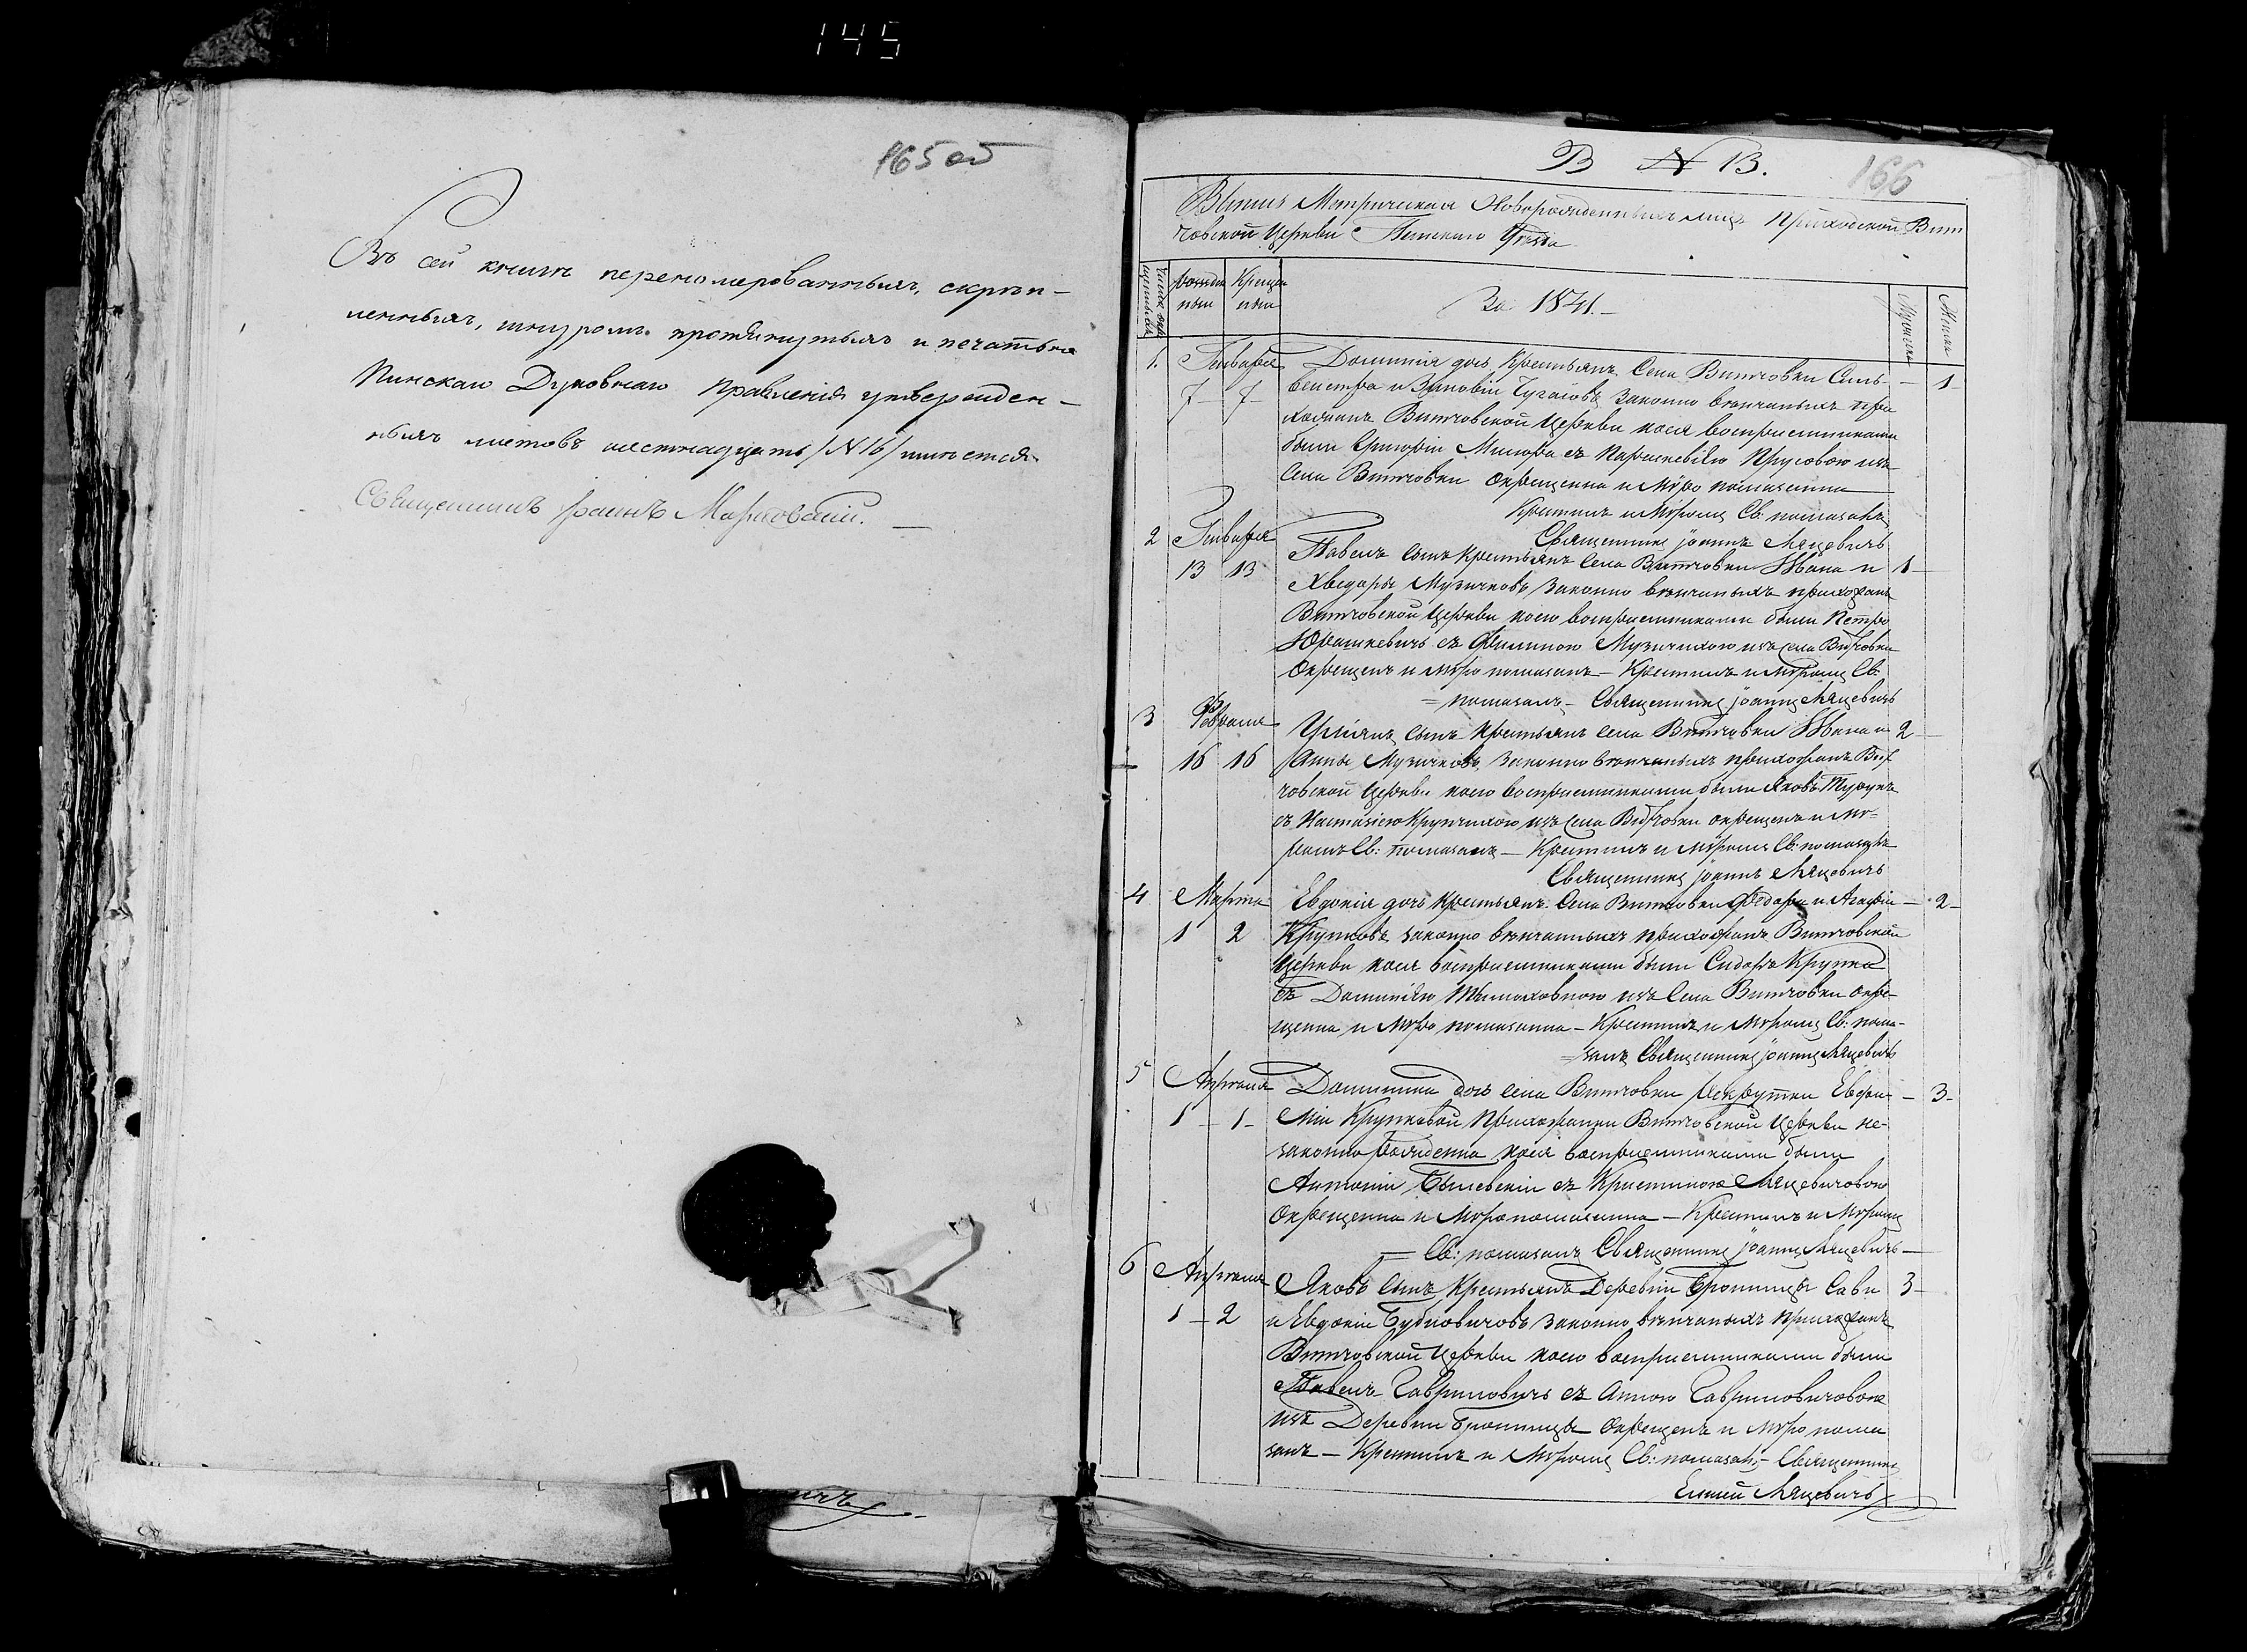 145
165 об
Въ сей книгѣ перенумерованныхъ, скрѣп-
ленныхъ, шнуромъ протянутыхъ и печатью
Пинскаго Духовнаго Правленія утвержден-
ныхъ листовъ шестнадцать /N 16/ имѣется
Священникъ Іоаннъ Марковскій.
В N 13.
166
Выпись Метрическая Новорожденныхъ лицъ Приходской Вит
човской Церкви Пинскаго Уѣзда
Рожде Креще
ныи ныи
За 1841.
Мужеска
Женска
1. Генваря Домникія дочь Крестьянъ Села Витчовки Силь- — 1
7 7 вестра и Зиновіи законно вѣнчаныхъ при
хожанъ Витчовской Церкви коея воспріемниками
были Григорій съ Параскевіею из
Села Витчовки окрещенна и мѵро помазанна
Крестилъ и Мѵромъ Св: помазалъ
Священникъ Іоаннъ Ляцевичъ
2 Генваря
13 13 Павелъ сынъ Крестьянъ Села Витчовки Ивана и 1
Хведоры Музычковъ законно вѣнчаныхъ прихожанъ
Витчовской Церкви коего воспріемниками были Петро
Юрашкевичъ съ Музычихою изъ Села Витчовки
Окрещенъ и мѵро помазанъ — Крестилъ и Мѵромъ Св:
= помазалъ — Священникъ Іоаннъ Ляцевичъ
3 Февраля сынъ Крестьянъ Села Витчовки Ивана и 2
16 16 Анны Музычковъ законно вѣнчаныхъ прихожанъ Вит
човской Церкви коего воспріемниками были Яковъ
съ Настасіею Крупчихою изъ Села Витчовки окрещенъ и мѵ=
ромъ Св: помазанъ — Крестилъ и Мѵромъ Св: помазалъ
Священникъ Іоаннъ Ляцевичъ
4 Марта Евдокія дочь Крестьянъ Села Витчовки Федора и Агафіи — 2
1 2 Крупковъ законно вѣнчанныхъ прихожанъ Витчовской
Церкви коея воспріемниками были Сидоръ Крупка
съ Домникіею изъ Села Витчовки окре-
щенна и мѵро помазанна — Крестилъ и Мѵромъ Св: пома-
=залъ Священникъ Іоаннъ Ляцевичъ
5 Апрѣля дочь Села Витчовки рекрутки Евфи- — 3
1 1 міи Крупковой прихожанки Витчовской Церкви не-
законно рожденна коея воспріемниками были
Антоній съ Кристиною Ляцевичовою
Окрещенна и Мѵропомазанна — Крестилъ и Мѵромъ
= Св: помазалъ Священникъ Іоаннъ Ляцевичъ
6 Апрѣля Яковъ сынъ Крестьянъ Деревни Бронницы Савы 3
1 2 и Евдокіи законно вѣнчаныхъ прихожанъ
Витчовской Церкви коего воспріемниками были
Павелъ Гавриловичъ съ Анною Гавриловичовою
изъ Деревни Бронницы Окрещенъ и мѵро пома
занъ — Крестилъ и Мѵромъ Св: помазалъ — Священникъ
Ляцевичъ